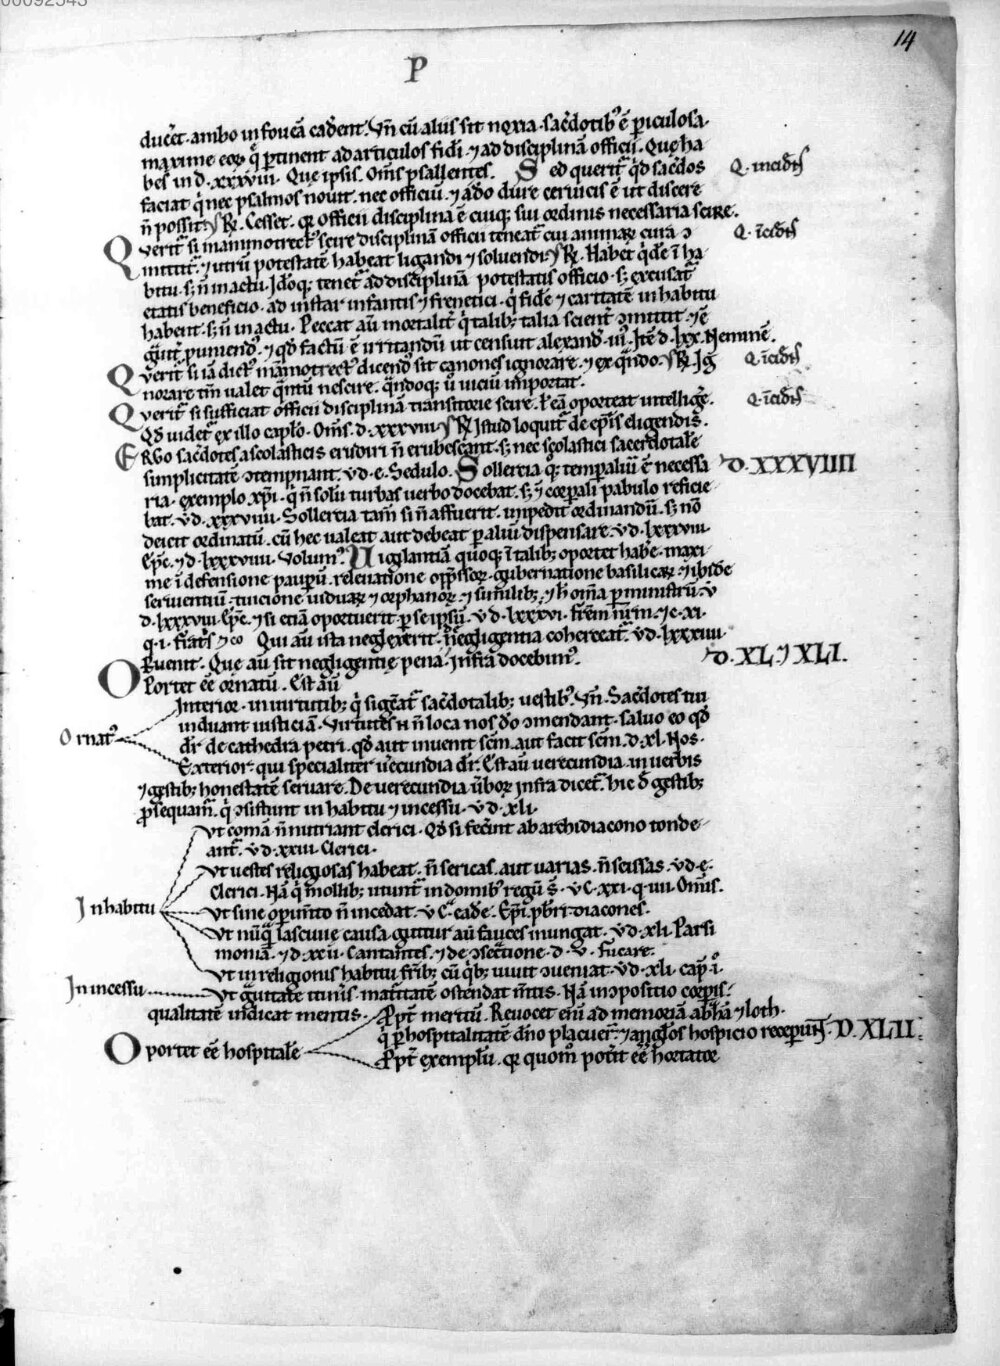 00092543
14
P
ducet̃. ambo in foueã cadent. Vñ cũ aliis sit noxia. sac̃dotib᷒ ẽ ꝑiculosa.
maxime eoꝝ q̇ ꝑtinent ad articulos fidei. ⁊ ad disciplinã officii. Que ha
bes in d. xxxviii. Que ipsis. Om̃s psallentes. Sed querit̃ q̇d sac̃dos
Q. incid̃s
faciat q̇ nec psalmos nouit. nec officiũ. ⁊ adeo dure ceruicis ẽ ut discere
ñ possit. ℟. Cesset. qꝛ officii disciplina ẽ cuiq; sui ordinis necessaria scire.
Querit̃ si mammotrect᷒ scire disciplinã officii teneat̃ cui animaꝝ cura ↄ
Q. ĩcid̃s
mittit̃. ⁊ utrũ potestatẽ habeat ligandi ⁊ soluendi. ℟. Habet q̇dẽ ĩ ha
bitu. s; ñ in actu. Idoq; tenet̃ ad disciplinã potestatis officio. s; excusat̃
etatis beneficio. ad instar infantis ⁊ frenetici. q̇ fidẽ ⁊ caritatẽ in habitu
habent. s; ñ in actu. Peccat aũ mortalit̃ q̇ talib; talia scient̃ ↄmittit. ⁊ ẽ
g̃uit̃ puniend᷒. ⁊ qd̃ factũ ẽ irritandũ ut censuit alexand̃. iii᷒. Itẽ d. lxx. Neminẽ.
Querit̃ si iã dict᷒ mãmotrect᷒ dicend᷒ sit canones ignorare. ⁊ ex q̃ndo. ℟. Ig̃
Q. ĩcid̃s
norare tm̃ ualet q̃ntũ nescire. q̃ndoq; ũ uiciũ importat.
Querit̃ si sufficiat officii disciplinã transitorie scire. ł eã oporteat intellig̃e.
Q. ĩcid̃s
Qd̃ uidet̃ ex illo caplo. Om̃s. d. xxxviii. ℟. Istud loquit̃ de ep̃is eligendis.
ERGO sac̃dotes a scolasticis erudiri ñ erubescant. s; nec scolastici sacerdotalẽ
simplicitatẽ ↄtempnant. ỽ d. e. Sedulo. Sollercia q᷒; temꝑaliũ ẽ necessa
D. XXXVIIII
ria. exemplo xp̃i. q̇ ñ solũ turbas uerbo docebat. s; ⁊ corꝑali pabulo reficie
bat. ỽ d. xxxviiii. Sollercia tam̃ si ñ affuerit. inpedit ordinandũ. s; nõ
deicit ordinatũ. cũ hec ualeat aut debeat ꝑ aliũ dispensare. ỽ d. lxxxviii.
Ep̃c. ⁊ d. lxxxviiii. Volum᷒. Vigilantiã quoq; ĩ talib; oportet habẽ. maxi
me ĩ defensione pauꝑũ. releuatione opp̃ssoꝝ. gubernatione basilicaꝝ. ⁊ ibidẽ
seruientiũ. tuicione uiduaꝝ ⁊ orphanoꝝ. ⁊ similib; ⁊ h̃ om̃ia ꝑ ministrũ. ỽ
d. lxxxviii. Ep̃c. ⁊ si etiã oportuerit ꝑ se ipsũ. ỽ d. lxxxvi. fr̃em nr̃m. ⁊ c. xi.
q. i. Qui aũ ista neglexerit. ñegligentia coherceat̃. ỽ d. lxxxiiii.
Peruenit. Que aũ sit negligentię pena. infra docebim᷒.
D. XL. ⁊ XLI.
Oportet ẽe ornatũ. Est aũ
Interior. in uirtutib; q̇ sig̃cat̃ sac̃dotalib; uestib᷒. Vñ. Sac̃dotes tui
induant iusticiã. Virtutes ñ loca nos d̃o ↄmendant. saluo eo qd̃
Ornat᷒
dr̃ de cathedra petri. qd̃ aut inuenit sc̃m. aut facit sc̃m. d. xl. Nos.
Exterior. qui specialiter uecundia dr̃. Est aũ uerecundia in uerbis
⁊ gestib; honestatẽ seruare. De uerecundia ũboꝝ infra dicet̃. hic d̃ gestib;
ꝓsequam̃. q̇ ↄsistunt in habitu ⁊ incessu. ỽ d. xli.
Vt comã ñ nutriant clerici. Qd̃ si fec̃int ab archidiacono tonde
ant̃. ỽ d. xxiii. Clerici.
Vt uestes religiosas habeat. ñ sericas. aut uarias. ñ scissas. ỽ d. e.
Clerici. Nã q̇ mollib; utunt̃ in domib᷒ regũ s̃. ỽ C. xxi. q. iiii. Om̃is.
In habitu
Vt sine oꝑim̃to ñ incedat. ỽ C. eadẽ. Ep̃i. pb̃ri. diacones.
Vt nũq̃ lasciuie causa guttur aũ fauces inungat. ỽ d. xli. Parsi
moniã. ⁊ d. xcii. Cantantes. ⁊ de ↄsec̃tione. d. v. fucare.
Vt in religionis habitu fr̃ib; cũ q̇b; uiuit ↄueniat. ỽ d. xli. cap̃. i.
In incessu
Vt g̃uitatẽ itin̾is. mat̃itatẽ ostendat m̃tis. Nã incↄpositio corꝑis.
qualitatẽ indicat mentis.
Ꝓpt̃ meritũ. Reuocet eni ad memoriã abr̃hã ⁊ loth.
q̇ ꝑ hospitalitatẽ dño placuer̃. ⁊ ang̃los hospicio receꝑunt̃.
D. XLII
Oportet ẽe hospitalẽ
Ꝓpt̃ exemplũ. qꝛ quom̃ pot̃it ẽẽ hortator